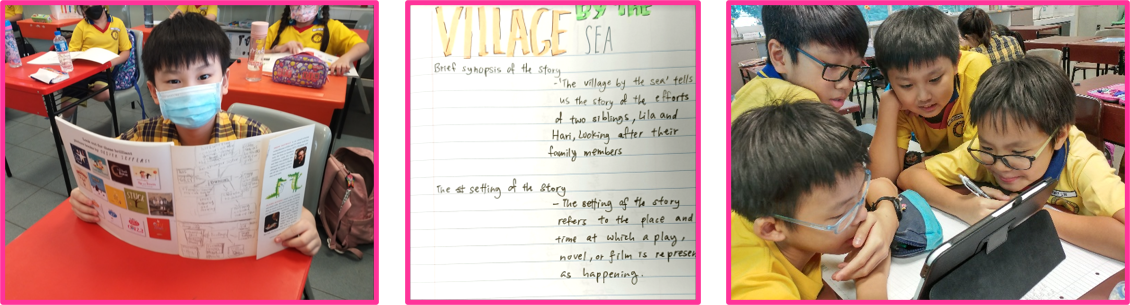 VIILAGE BY THE
SEA
Brief synopsis of the story
- 'The village by the sea' tells
us the story of the efforts
of two siblings, Lila and
Hari, looking after their
family members
The st setting of the story
- The setting of the story
refers to the place and
time at which a play,
novel, or film is represen
as happening.